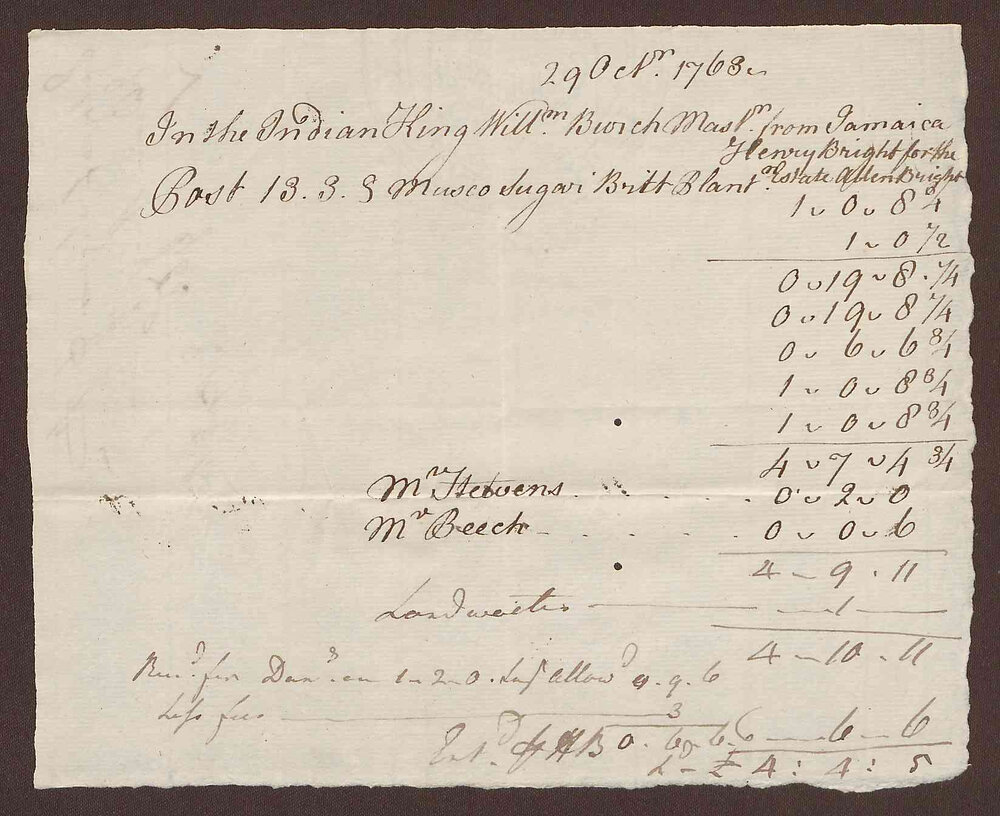 29 Octr. 1768
In the Indian King Willm. Burch Mastr. from Jamaica
Henry Bright for the
Estate Allen Bright
Post 13. 3. 9 Musco Sugar Britt Plantn.
1 ~ 0 ~ 8 3/4
1 ~ 0 1/2
0 ~ 19 ~ 8 . 1/4
0 ~ 19 ~ 8 1/4
0 ~ 6 ~ 6 3/4
1 ~ 0 ~ 8 3/4
1 ~ 0 ~ 8 3/4
4 ~ 7 ~ 4 3/4
Mr Stevens . . . . . 0 ~ 2 ~ 0
Mr Beech . . . . . 0 ~ 0 ~ 6
4 - 9 . 11
Landwaiter - 1 -
4 - 10 . 11
for Dam. on 1-2-0. Allowd 9. 6
Less fees 3
Entd. HB 0. 6. 6 6 - 6
£ 4 : 4 : 5